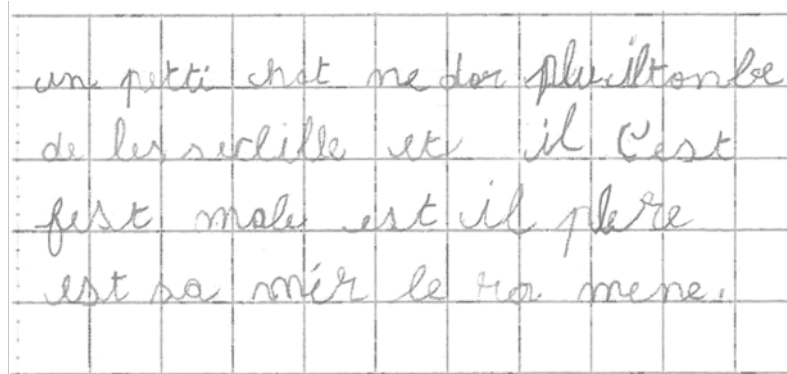 un petti chat ne dor plu iltonbe
de les seclille et il c'est
fest male est il plere
est sa mér le ra mene.